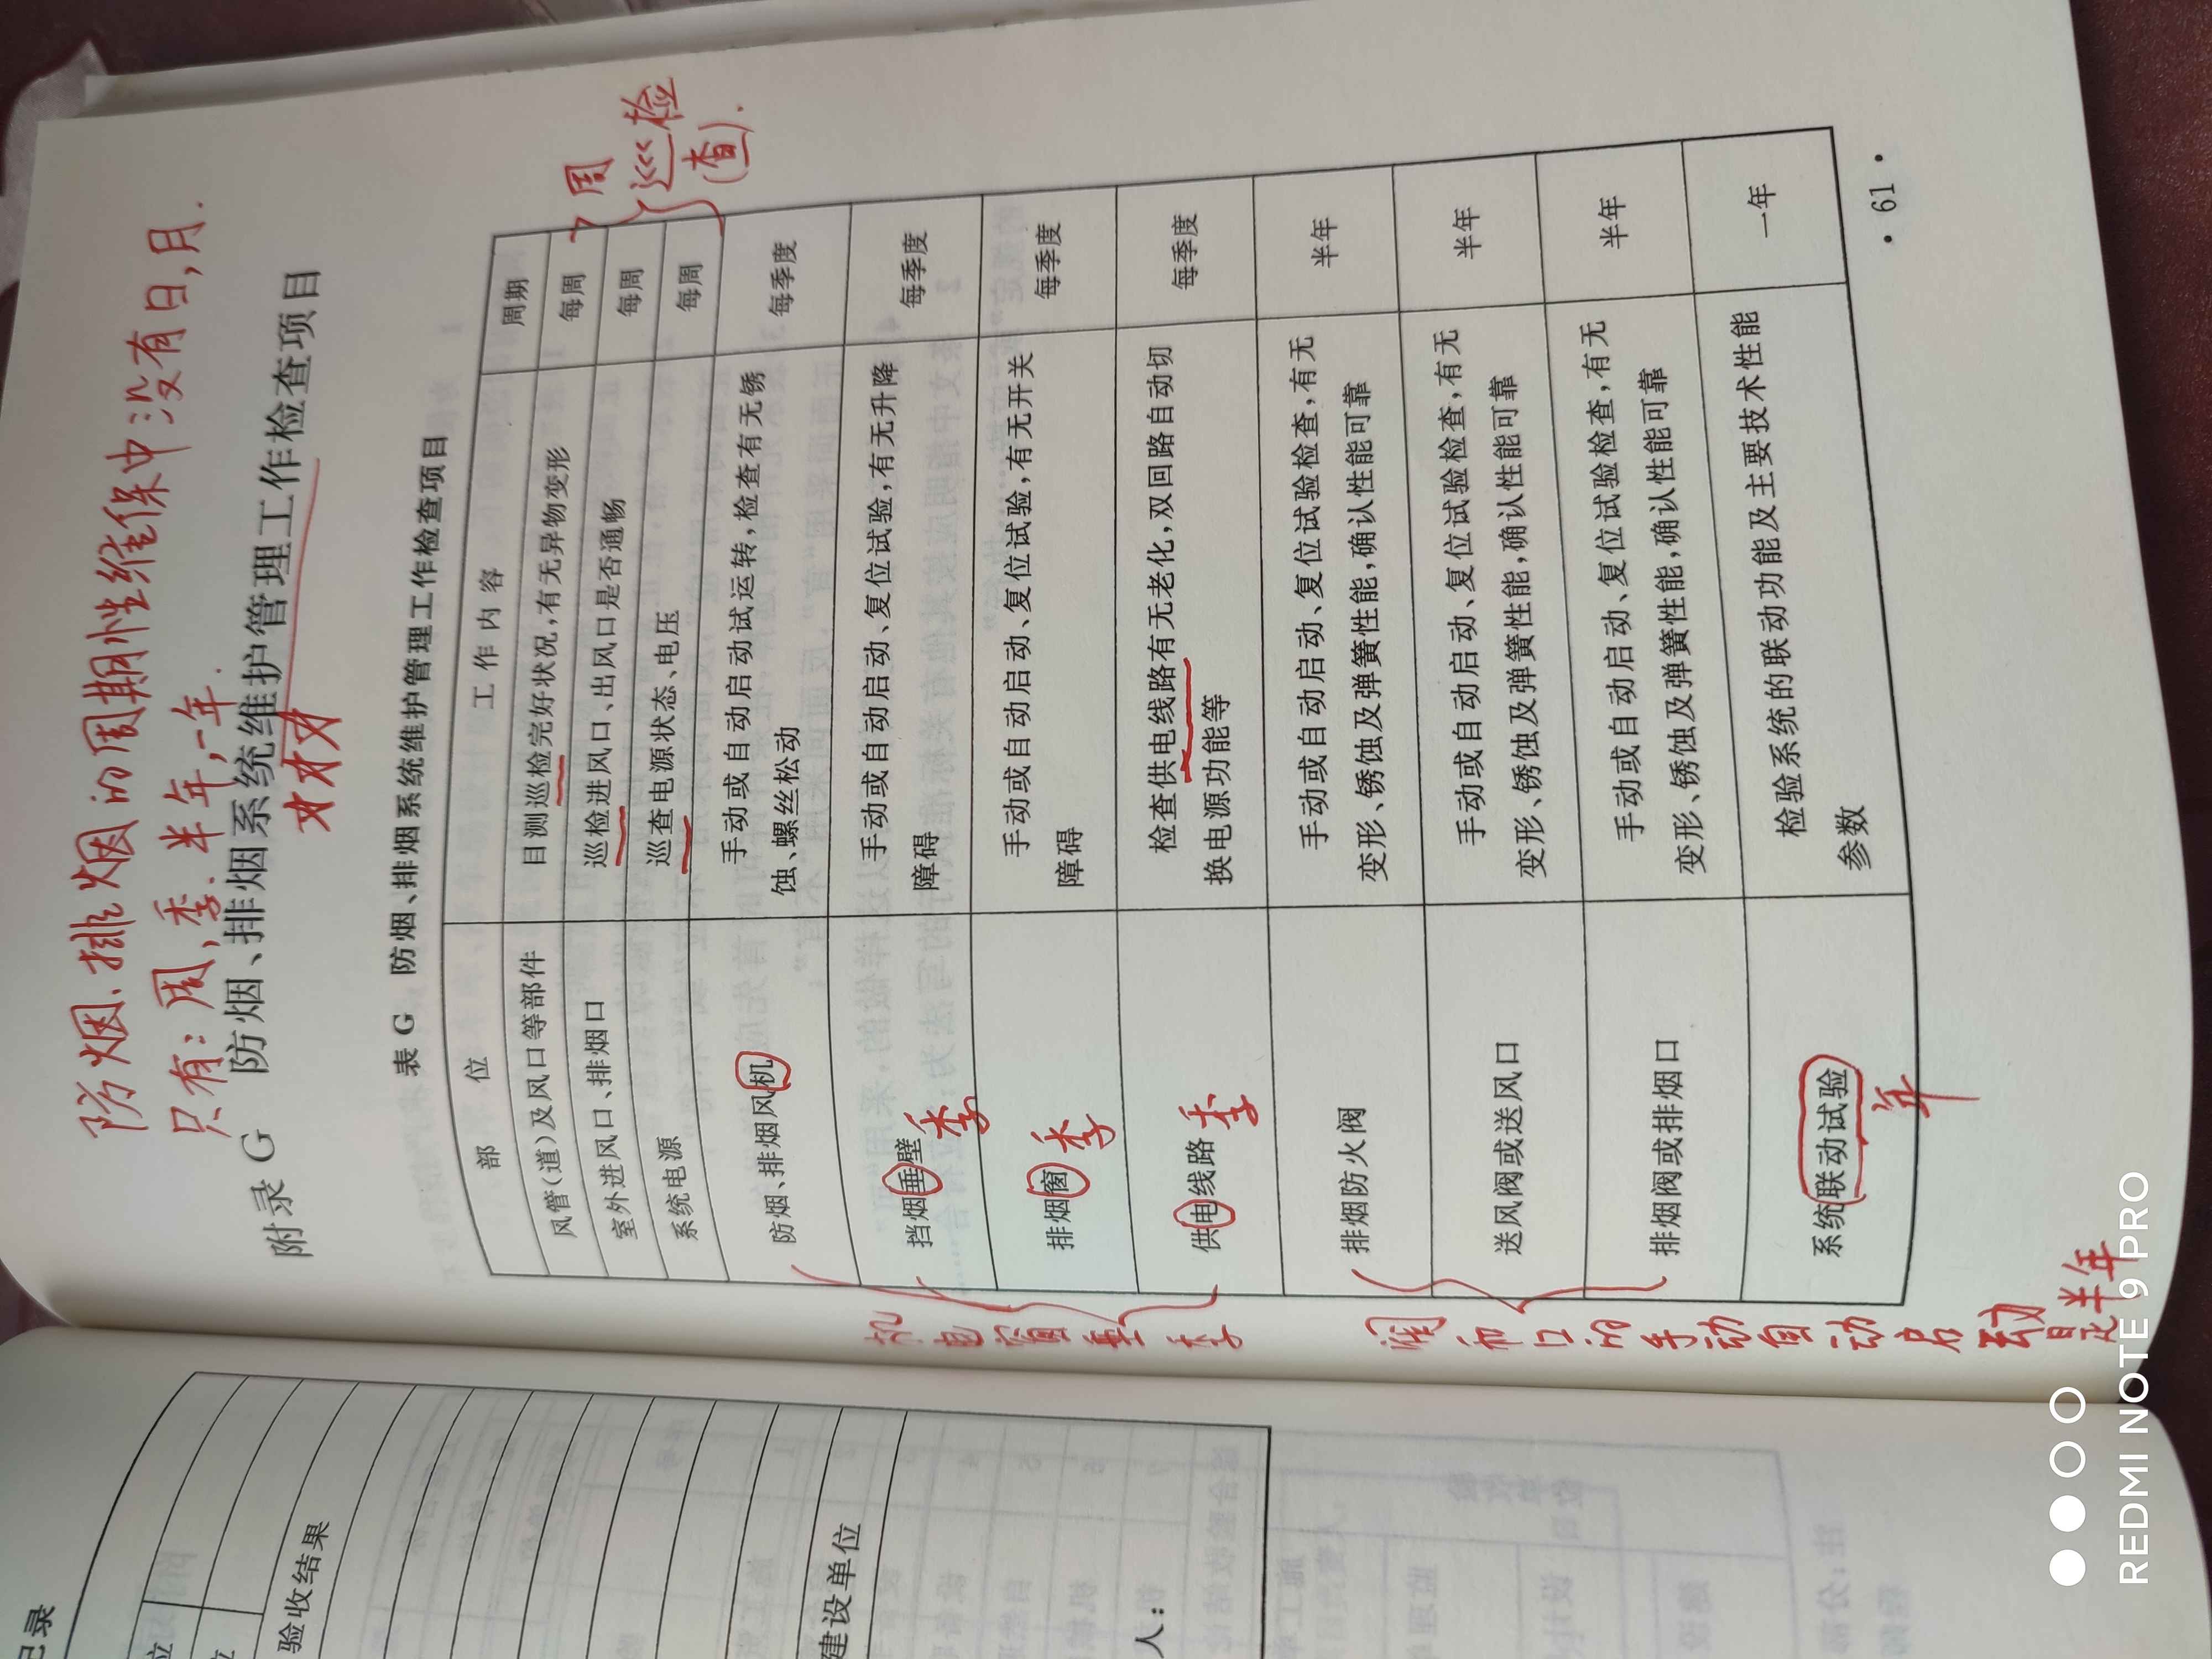 防烟、排烟的周期性维保中:没有日,月.
只有:周,季.半年,一年.
附录G 防烟、排烟系统维护管理工作检查项目
表 G 防烟、排烟系统维护管理工作检查项目
部 位 工 作 内 容 周期
风管(道)及风口等部件 目测巡检完好状况,有无异物变形 每周
室外进风口、排烟口 巡检进风口、出风口是否通畅 每周
系统电源 巡查电源状态、电压 每周
周
巡检
(查).
防烟、排烟风机 手动或自动启动试运转,检查有无锈 每季度
蚀、螺丝松动
挡烟垂壁 手动或自动启动、复位试验,有无升降 每季度
障碍
季
排烟窗 手动或自动启动、复位试验,有无开关 每季度
障碍
季
供电线路 检查供电线路有无老化,双回路自动切 每季度
换电源功能等
季
机电窗垂季
排烟防火阀 手动或自动启动、复位试验检查,有无 半年
变形、锈蚀及弹簧性能,确认性能可靠
送风阀或送风口 手动或自动启动、复位试验检查,有无 半年
变形、锈蚀及弹簧性能,确认性能可靠
排烟阀或排烟口 手动或自动启动、复位试验检查,有无 半年
变形、锈蚀及弹簧性能,确认性能可靠
阀和口的手动自动启动是半年
系统联动试验 检验系统的联动功能及主要技术性能 一年
参数
年
· 61 ·
记录
位
位
验收结果
建设单位
人:
REDMI NOTE 9 PRO